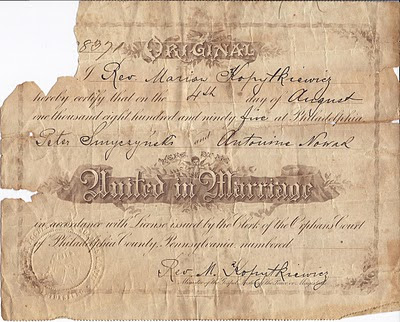 ORIGINAL
I Rev. Marian Kopytkiewicz
hereby certify that on the 4th day of August
one thousand eight hundred and ninety five at Philadelphia
Peter Smyczyński and Antonina Nowak
United in Marriage
in accordance with License issued by the Clerk of the Orphans Court
of Philadelphia County, Pennsylvania numbered
Rev. M. Kopytkiewicz
Minister of the Gospel